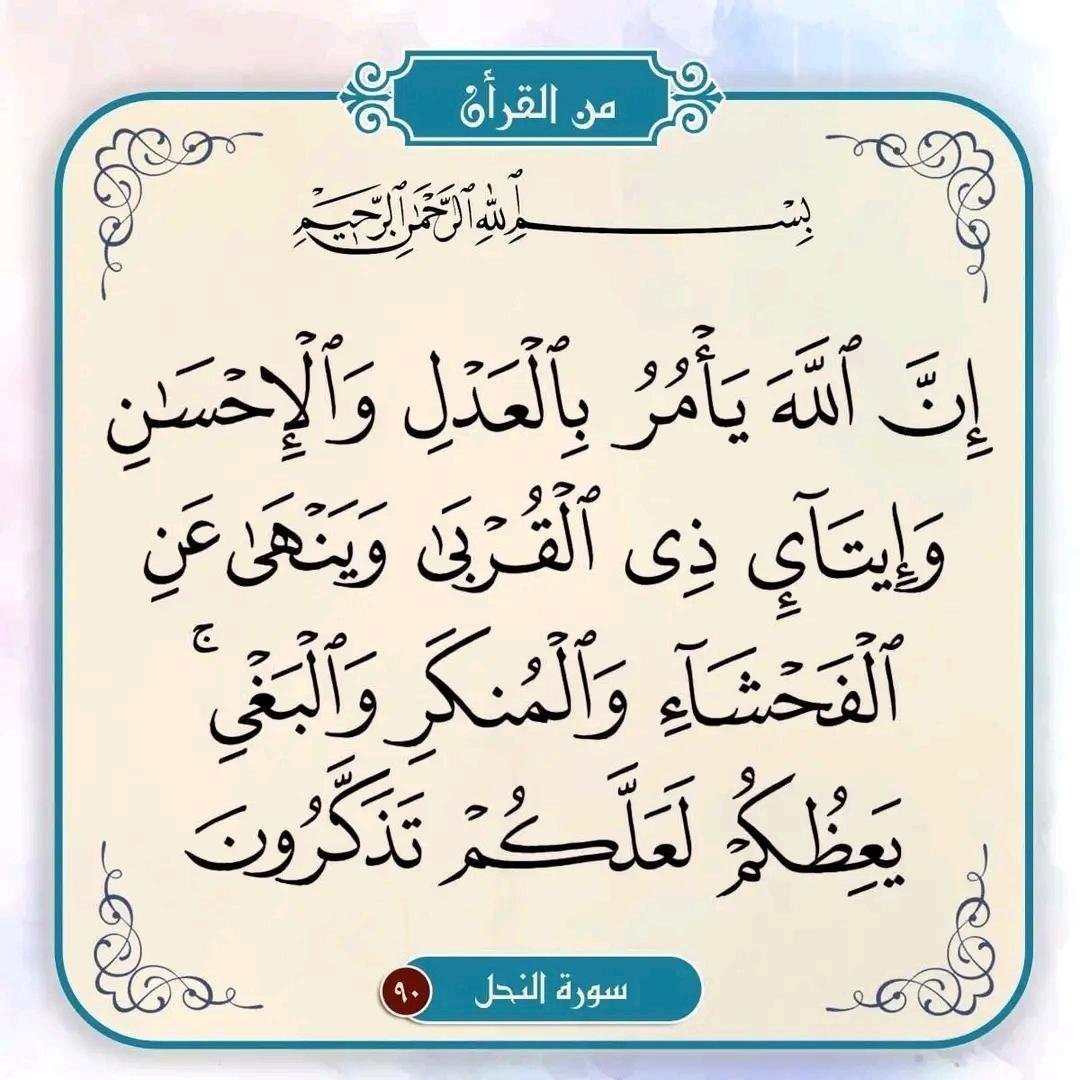 من القرأن
بِسْمِ ٱللَّهِ ٱلرَّحْمَٰنِ ٱلرَّحِيمِ
إِنَّ ٱللَّهَ يَأْمُرُ بِٱلْعَدْلِ وَٱلْإِحْسَٰنِ
وَإِيتَآئِ ذِى ٱلْقُرْبَىٰ وَيَنْهَىٰ عَنِ
ٱلْفَحْشَآءِ وَٱلْمُنكَرِ وَٱلْبَغْىِ ۚ
يَعِظُكُمْ لَعَلَّكُمْ تَذَكَّرُونَ
سورة النحل ٩٠